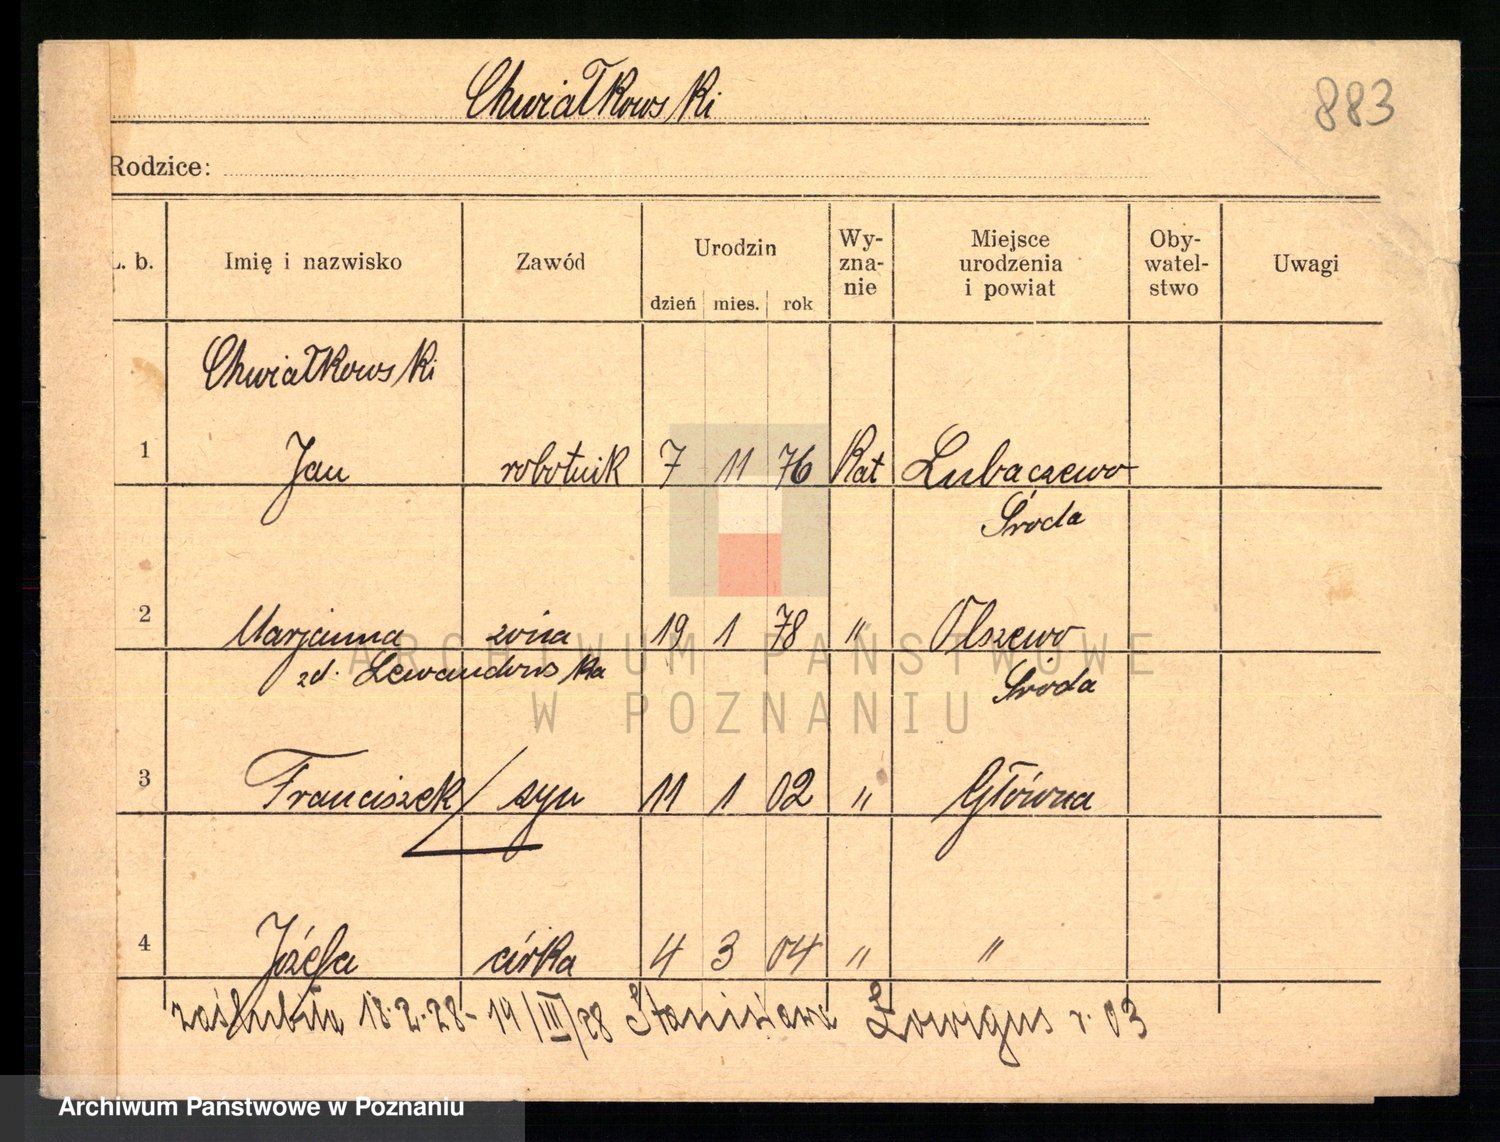 Chwiałkowski
883
Rodzice:
L. b. Imię i nazwisko Zawód Urodzin dzień mies. rok Wy-zna-nie Miejsce urodzenia i powiat Oby-watel-stwo Uwagi
Chwiałkowski
1 Jan robotnik 7 11 76 Kat Lubaczewo
Środa
2 Marjanna żona 19 1 78 " Olszewo
zd. Lewandowska Środa
ARCHIWUM PAŃSTWOWE
W POZNANIU
3 Franciszek syn 11 1 02 " Główna
4 Józefa córka 4 3 04 " "
zaślubiła 18.2.28 - 19/III/28 Stanisława r. 03
Archiwum Państwowe w Poznaniu